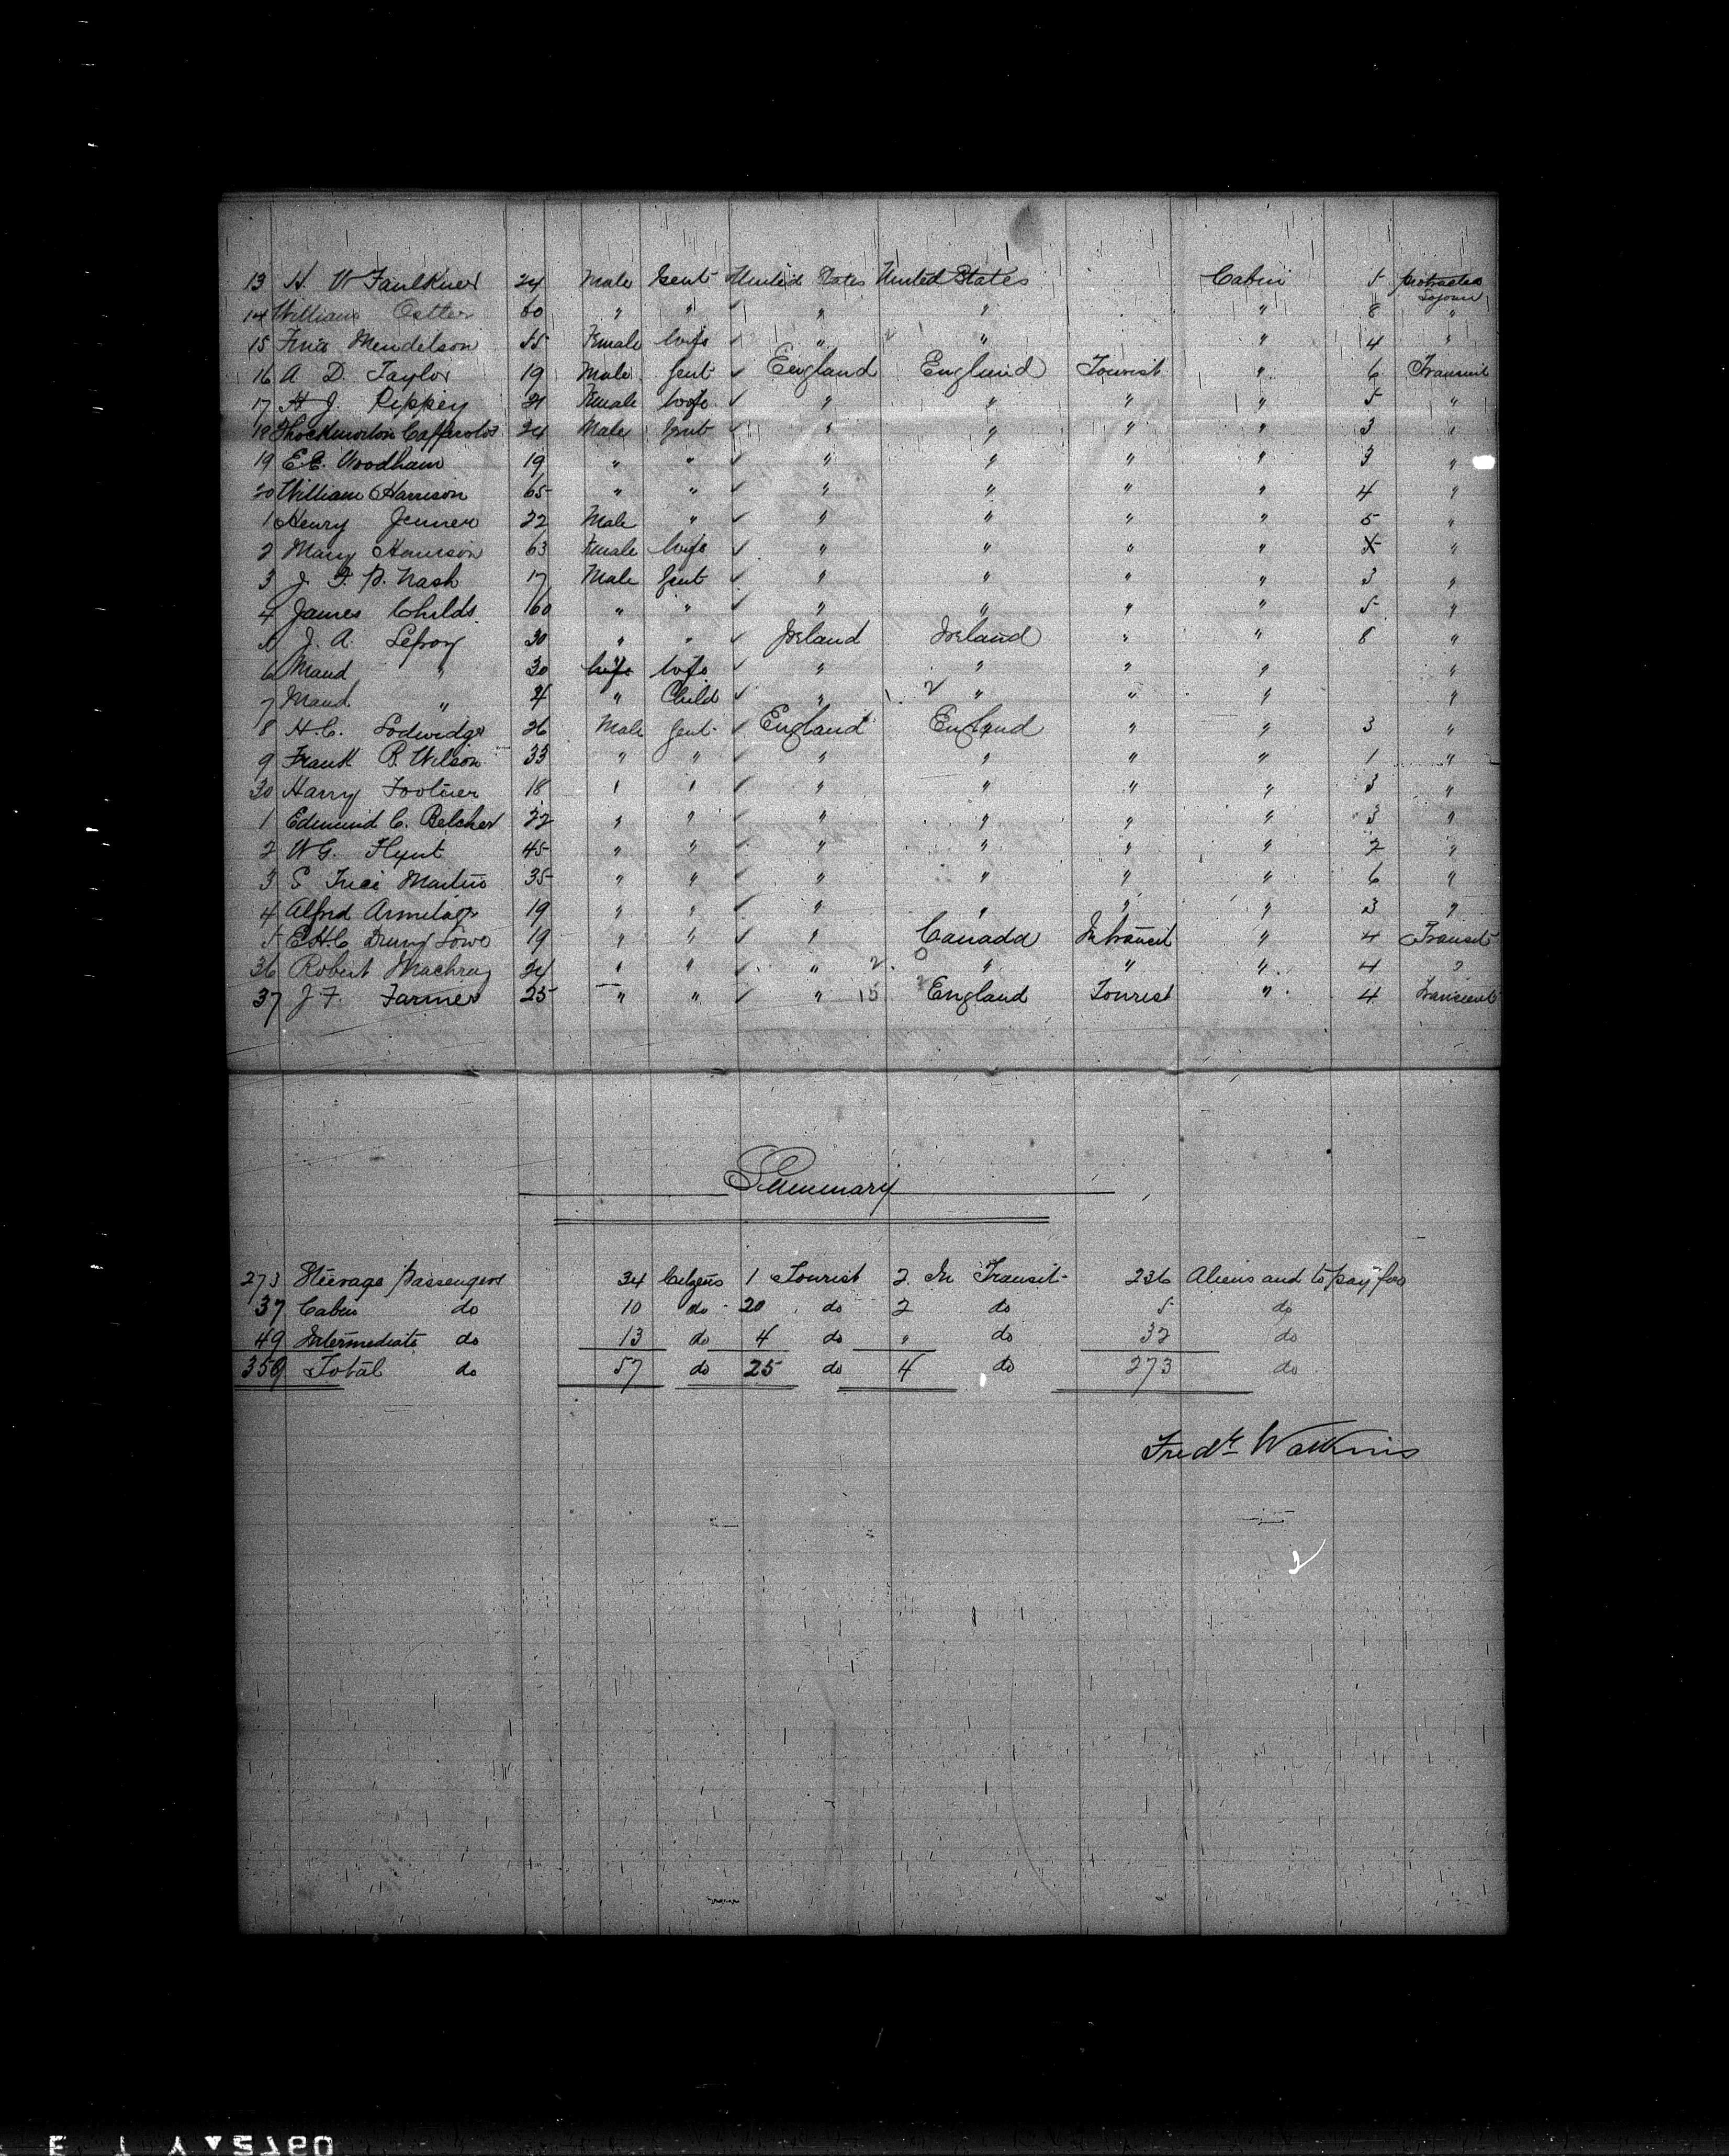 13 H. W Faulkner 24 Male Gent United States United States Cabin 5 protracted sojourn
14 William 60 " " " " " 8 "
15 Mendelson 55 Female Wife " " " 4 "
16 A D. Taylor 19 Male Gent England England Tourist " 6 Transient
17 H J. Rippey 21 Female Wife " " " " 5 "
18 Thockmorton 24 Male Gent " " " " 3 "
19 E.E. Woodham 19 " " " " " " 3 "
20 William Harrison 65 " " " " " " 4 "
1 Henry Jenner 22 Male " " " " " 5 "
2 Mary Harrison 63 Female Wife " " " " "
3 J. F. P. Nash 17 Male Gent " " " " 3 "
4 James Childs 60 " " " " " " 5 "
5 J. A. Lefroy 30 " " Ireland Ireland " " 8 "
6 Maud " 30 Wife Wife " " " " "
7 Maud " 4 " Child " 2 " " " "
8 H.C. Lodwidge 26 Male Gent England England " " 3 "
9 Frank B. Wilson 33 " " " " " " 1 "
30 Harry Footner 18 " " " " " " 3 "
1 Edmund C. Belcher 22 " " " " " " 3 "
2 W G. Flynt 45 " " " " " " 2 "
3 S Martin 35 " " " " " " 6 "
4 Alfred Armitage 19 " " " " " " 3 "
5 E H C Drury Lowe 19 " " " Canada In transit " 4 Transit
36 Robert Machray 24 " " " 2 " " " 4 "
37 J F. Farmer 25 " " " 15 England Tourist " 4 Transient
Summary
273 Steerage Passengers 34 Citizens 1 Tourist 2 In Transit 236 Aliens and to pay for
37 Cabin do 10 do 20 do 2 do 5 do
49 Intermediate do 13 do 4 do " do 32 do
359 Total do 57 do 25 do 4 do 273 do
Fredk Watkins
2